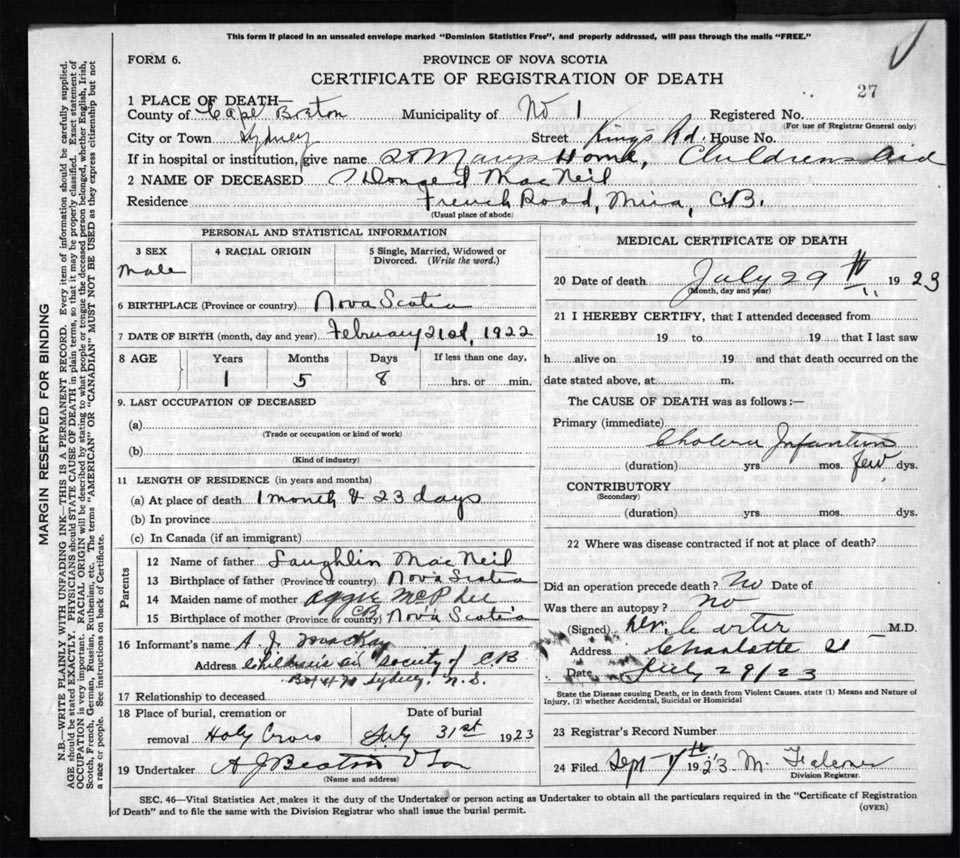 This form if placed in an unsealed envelope marked "Dominion Statistics Free", and properly addressed, will pass through the mails "FREE."
FORM 6.
PROVINCE OF NOVA SCOTIA
CERTIFICATE OF REGISTRATION OF DEATH
27
1 PLACE OF DEATH—
County of Cape Breton Municipality of No 1 Registered No.
(For use of Registrar General only)
City or Town Sydney Street Kings Rd. House No.
If in hospital or institution, give name St Marys Home, Childrens Aid
2 NAME OF DECEASED MacNeil
Residence French Road, Mira, C.B.
(Usual place of abode)
PERSONAL AND STATISTICAL INFORMATION
3 SEX 4 RACIAL ORIGIN 5 Single, Married, Widowed or Divorced. (Write the word.)
Male
6 BIRTHPLACE (Province or country) Nova Scotia
7 DATE OF BIRTH (month, day and year) February 21st, 1922
8 AGE Years Months Days If less than one day,
1 5 8 hrs. or min.
9. LAST OCCUPATION OF DECEASED
(a)
(Trade or occupation or kind of work)
(b)
(Kind of industry)
11 LENGTH OF RESIDENCE (in years and months)
(a) At place of death 1 month & 23 days
(b) In province
(c) In Canada (if an immigrant)
Parents
12 Name of father Laughlin MacNeil
13 Birthplace of father (Province or country) Nova Scotia
14 Maiden name of mother Aggie McPhee
15 Birthplace of mother (Province or country) CB Nova Scotia
16 Informant's name A. J. MacKay
Address Children's Aid Society of C.B
Sydney, N.S.
17 Relationship to deceased
18 Place of burial, cremation or removal Holy Cross
Date of burial July 31st 1923
19 Undertaker A J Beaton & Son
(Name and address)
MEDICAL CERTIFICATE OF DEATH
20 Date of death July 29th 1923
(Month, day and year)
21 I HEREBY CERTIFY, that I attended deceased from
19 to 19 that I last saw
h alive on 19 and that death occurred on the
date stated above, at m.
The CAUSE OF DEATH was as follows:—
Primary (immediate)
Cholera Infantum
(duration) yrs. mos. few dys.
CONTRIBUTORY
(Secondary)
(duration) yrs. mos. dys.
22 Where was disease contracted if not at place of death?
Did an operation precede death? No Date of
Was there an autopsy? No
(Signed) Dr. Carter M.D.
Address Charlotte St
Date July 29/23
State the Disease causing Death, or in death from Violent Causes. state (1) Means and Nature of Injury, (2) whether Accidental, Suicidal or Homicidal
23 Registrar's Record Number
24 Filed Sept 1923 M.
Division Registrar.
SEC. 46—Vital Statistics Act, makes it the duty of the Undertaker or person acting as Undertaker to obtain all the particulars required in the "Certificate of Registration
of Death" and to file the same with the Division Registrar who shall issue the burial permit.
(OVER)
MARGIN RESERVED FOR BINDING
N.B.—WRITE PLAINLY WITH UNFADING INK—THIS IS A PERMANENT RECORD. Every item of information should be carefully supplied.
AGE should be stated EXACTLY. PHYSICIANS should STATE CAUSE OF DEATH in plain terms, so that it may be properly classified. Exact statement of
OCCUPATION is very important. RACIAL ORIGIN will be described by stating to what people or tongue the deceased person belonged, whether English, Irish,
Scotch, French, German, Russian, Ruthenian, etc. The terms "AMERICAN" OR "CANADIAN" MUST NOT BE USED as they express citizenship but not
a race or people. See instructions on back of Certificate.